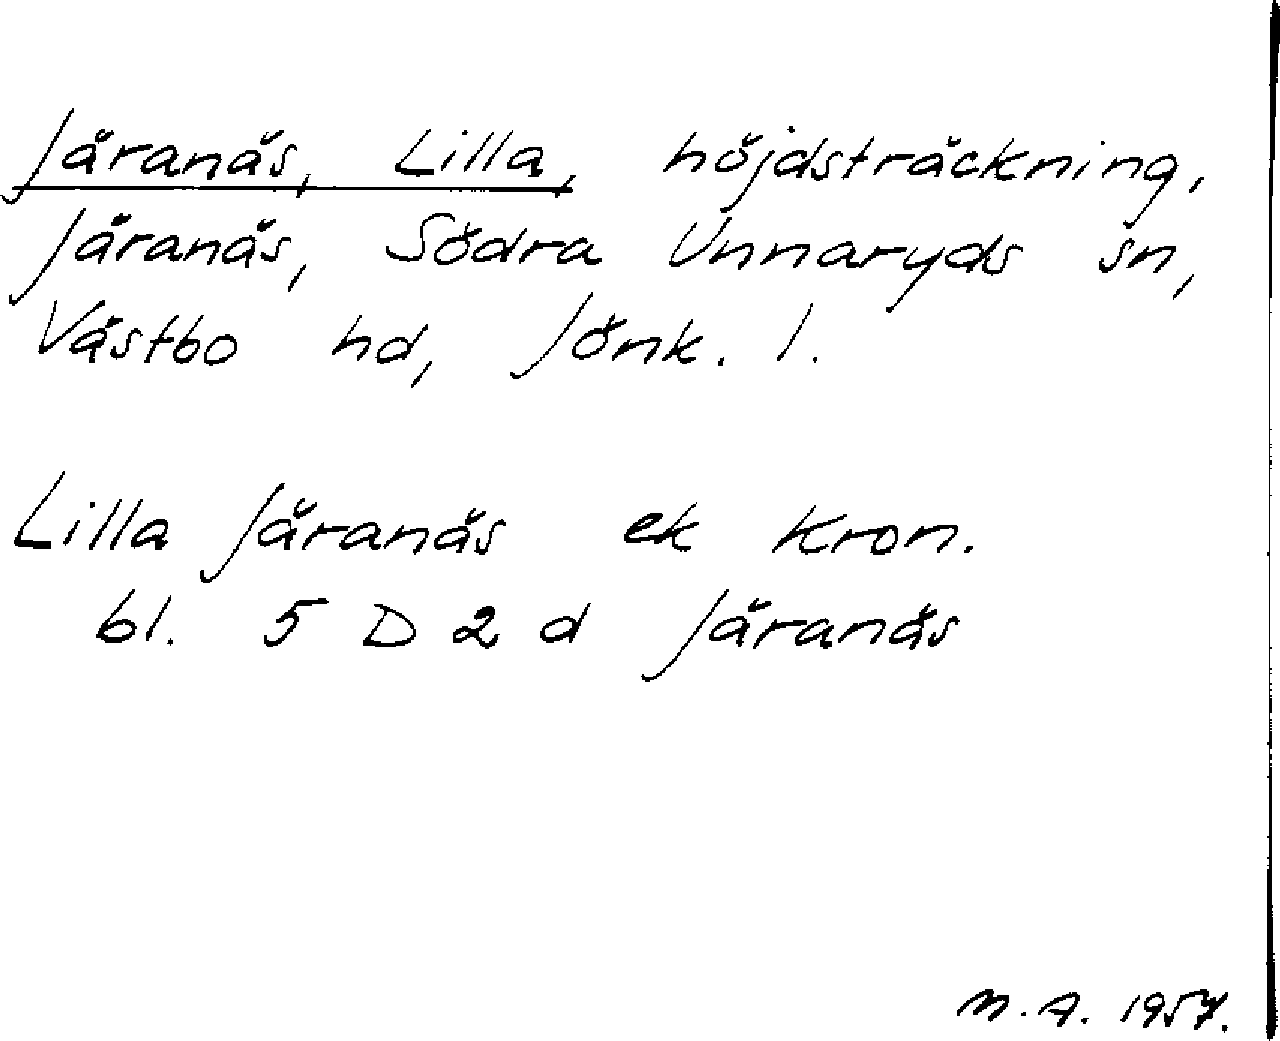 Järanäs, Lilla, höjdsträckning,
Järanäs, Södra Unnaryds sn,
Västbo hd, Jönk. l.
Lilla Järanäs ek Kron.
bl. 5 D 2 d Järanäs
M. A. 1957.